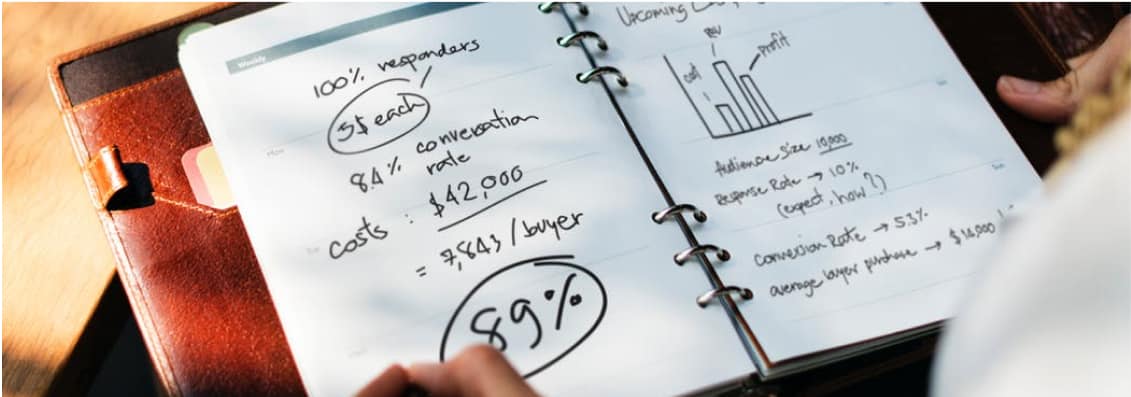 Weekly
100% responders
3$ each
8.4% conversation
rate
costs : $42,000
= 7,843 / buyer
89%
Upcoming
cost
Rev
Profit
Audience Size 10,000
Response Rate → 10%
(expect, how?)
Conversion Rate → 5.3%
average buyer purchase → $14,000